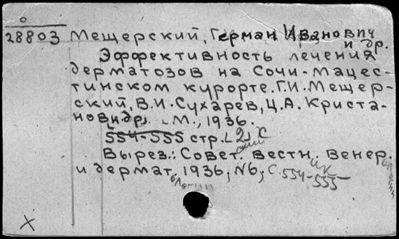 28803 Мещерский, Герман Иванович
и др.
Эффективность лечения
дерматозов на Сочи-Мацес-
тинском курорте. Г.И. Мещер-
ский, В.И. Сухарев, Ц.А. Криста-
нов и др. М., 1936.
554-555 стр. [2] с
Вырез.: Совет. вестн. венер.
и дермат. 1936, №6, с. 554-555